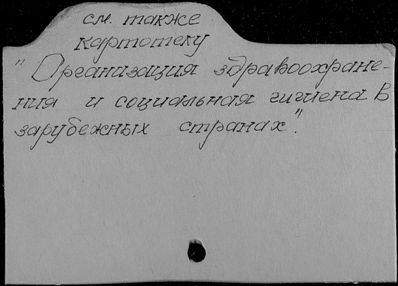 см. также
картотеку
"Организация здравоохране-
ния и социальная гигиена в
зарубежных странах".